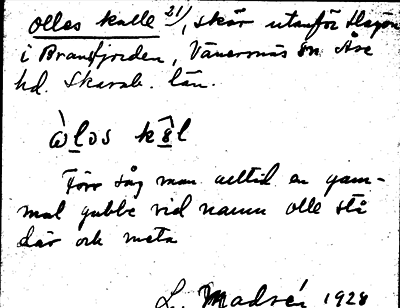 Olles kulle 21), skär utanför Hagön
i Brandfjorden, Vänersnäs sn Åse
hd. Skarab. län.
ὼlos kâl
Förr såg man alltid en gam-
mal gubbe vid namn Olle stå
där och meta
L. Madsén 1928